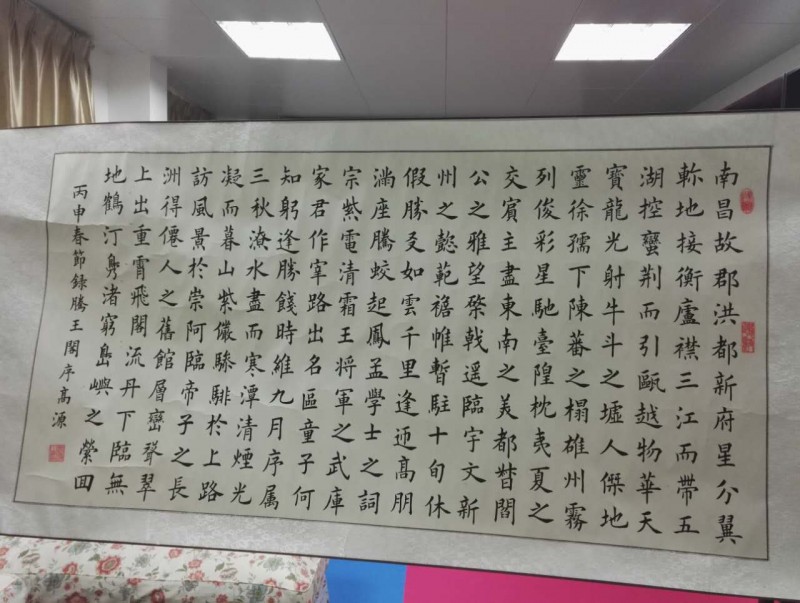 南昌故郡洪都新府星分翼
軫地接衡廬襟三江而帶五
湖控蠻荆而引甌越物華天
寶龍光射牛斗之墟人傑地
靈徐孺下陳蕃之榻雄州霧
列俊彩星馳臺隍枕夷夏之
交賓主盡東南之美都督閻
公之雅望棨戟遥臨宇文新
州之懿範襜帷暫駐十旬休
假勝友如雲千里逢迎高朋
滿座騰蛟起鳳孟學士之詞
宗紫電清霜王將軍之武庫
家君作宰路出名區童子何
知躬逢勝餞時維九月序属
三秋潦水盡而寒潭清煙光
凝而暮山紫儼驂騑於上路
訪風景於崇阿臨帝子之長
洲得僊人之舊館層巒聳翠
上出重霄飛閣流丹下臨無
地鶴汀鳧渚窮島嶼之縈回
丙申春節錄騰王閣序高源